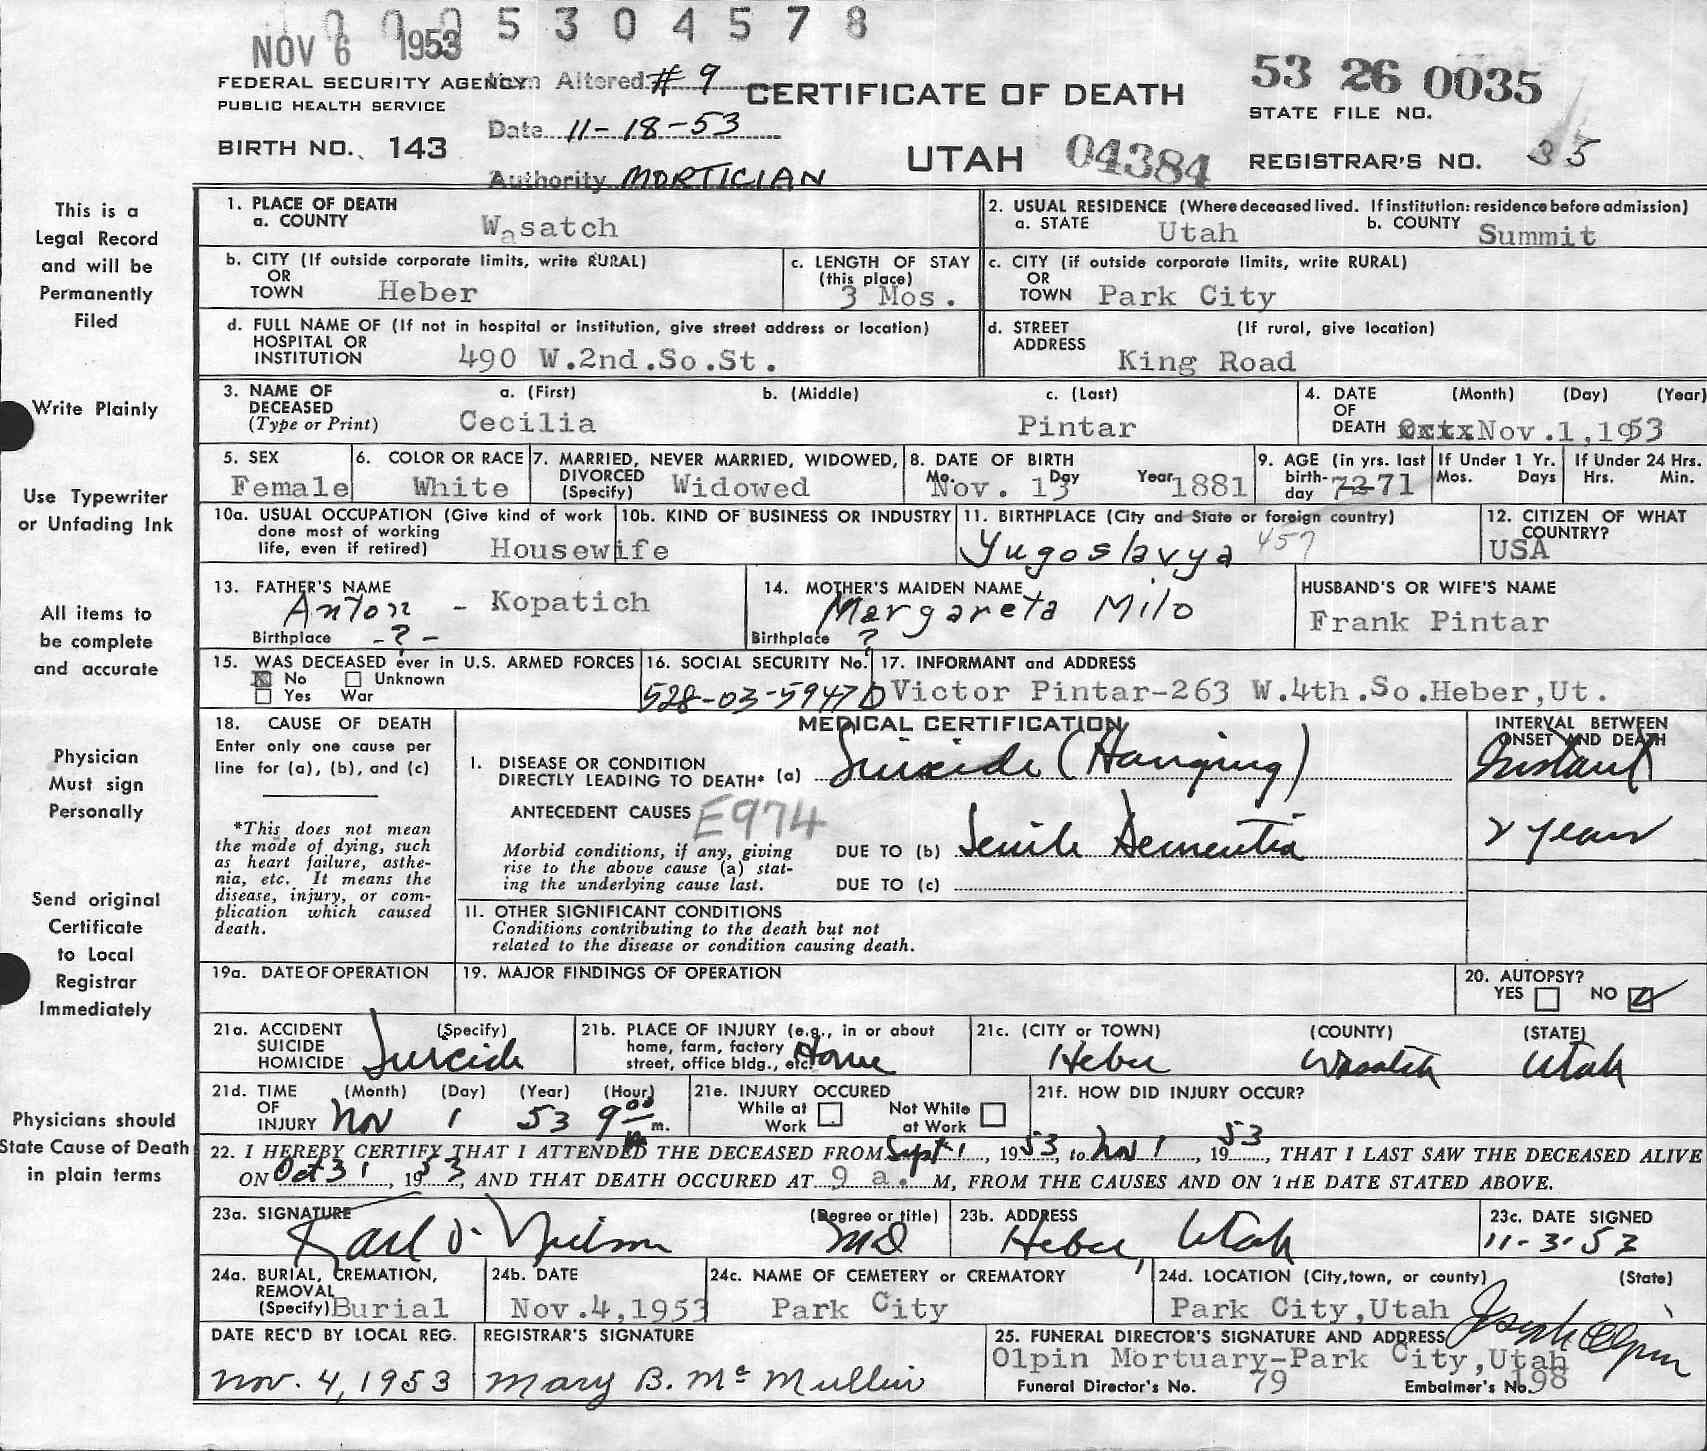 0 0 0 5 3 0 4 5 7 8
NOV 6 1953
FEDERAL SECURITY AGENCY
Item Altered # 9
PUBLIC HEALTH SERVICE
CERTIFICATE OF DEATH
53 26 0035
STATE FILE NO.
Date 11-18-53
BIRTH NO. 143
UTAH 04384
REGISTRAR'S NO. 35
Authority MORTICIAN
This is a
Legal Record
and will be
Permanently
Filed
Write Plainly
Use Typewriter
or Unfading Ink
All items to
be complete
and accurate
Physician
Must sign
Personally
Send original
Certificate
to Local
Registrar
Immediately
Physicians should
State Cause of Death
in plain terms
1. PLACE OF DEATH
a. COUNTY Wasatch
2. USUAL RESIDENCE (Where deceased lived. If institution: residence before admission)
a. STATE Utah b. COUNTY Summit
b. CITY (If outside corporate limits, write RURAL)
OR
TOWN Heber
c. LENGTH OF STAY
(this place)
3 Mos.
c. CITY (if outside corporate limits, write RURAL)
OR
TOWN Park City
d. FULL NAME OF (If not in hospital or institution, give street address or location)
HOSPITAL OR
INSTITUTION 490 W.2nd.So.St.
d. STREET (If rural, give location)
ADDRESS King Road
3. NAME OF a. (First) b. (Middle) c. (Last)
DECEASED
(Type or Print) Cecilia Pintar
4. DATE (Month) (Day) (Year)
OF
DEATH Nov.1,1953
5. SEX
Female
6. COLOR OR RACE
White
7. MARRIED, NEVER MARRIED, WIDOWED,
DIVORCED
(Specify) Widowed
8. DATE OF BIRTH
Mo. Day Year
Nov. 13 1881
9. AGE (in yrs. last
birth-
day 72 71
If Under 1 Yr.
Mos. Days
If Under 24 Hrs.
Hrs. Min.
10a. USUAL OCCUPATION (Give kind of work
done most of working
life, even if retired) Housewife
10b. KIND OF BUSINESS OR INDUSTRY
11. BIRTHPLACE (City and State or foreign country)
Yugoslavya 457
12. CITIZEN OF WHAT
COUNTRY?
USA
13. FATHER'S NAME
Anton - Kopatich
Birthplace -?-
14. MOTHER'S MAIDEN NAME
Margareta Milo
Birthplace ?
HUSBAND'S OR WIFE'S NAME
Frank Pintar
15. WAS DECEASED ever in U.S. ARMED FORCES
No Unknown
Yes War
16. SOCIAL SECURITY No.
528-03-5947D
17. INFORMANT and ADDRESS
Victor Pintar-263 W.4th.So.Heber,Ut.
18. CAUSE OF DEATH
Enter only one cause per
line for (a), (b), and (c)
*This does not mean
the mode of dying, such
as heart failure, asthe-
nia, etc. It means the
disease, injury, or com-
plication which caused
death.
MEDICAL CERTIFICATION
INTERVAL BETWEEN
ONSET AND DEATH
I. DISEASE OR CONDITION
DIRECTLY LEADING TO DEATH* (a) Suicide (Hanging) Instant
ANTECEDENT CAUSES E974
Morbid conditions, if any, giving
rise to the above cause (a) stat-
ing the underlying cause last.
DUE TO (b) Senile Dementia 2 years
DUE TO (c)
II. OTHER SIGNIFICANT CONDITIONS
Conditions contributing to the death but not
related to the disease or condition causing death.
19a. DATE OF OPERATION
19. MAJOR FINDINGS OF OPERATION
20. AUTOPSY?
YES NO
21a. ACCIDENT (Specify)
SUICIDE
HOMICIDE Suicide
21b. PLACE OF INJURY (e.g., in or about
home, farm, factory
street, office bldg., etc. Home
21c. (CITY or TOWN) (COUNTY) (STATE)
Heber Wasatch Utah
21d. TIME (Month) (Day) (Year) (Hour)
OF
INJURY Nov 1 53 9 00 m.
21e. INJURY OCCURED
While at Work Not While at Work
21f. HOW DID INJURY OCCUR?
22. I HEREBY CERTIFY THAT I ATTENDED THE DECEASED FROM Sept 1, 1953, to Nov 1, 1953, THAT I LAST SAW THE DECEASED ALIVE
ON Oct 31, 1953, AND THAT DEATH OCCURED AT 9 a. M, FROM THE CAUSES AND ON THE DATE STATED ABOVE.
23a. SIGNATURE (Degree or title)
Karl O. Nielson MD
23b. ADDRESS
Heber, Utah
23c. DATE SIGNED
11-3-53
24a. BURIAL, CREMATION,
REMOVAL
(Specify) Burial
24b. DATE
Nov.4,1953
24c. NAME OF CEMETERY or CREMATORY
Park City
24d. LOCATION (City,town, or county) (State)
Park City,Utah
DATE REC'D BY LOCAL REG.
Nov. 4, 1953
REGISTRAR'S SIGNATURE
Mary B. McMullin
25. FUNERAL DIRECTOR'S SIGNATURE AND ADDRESS Joseph Olpin
Olpin Mortuary-Park City,Utah
Funeral Director's No. 79 Embalmer's No. 198